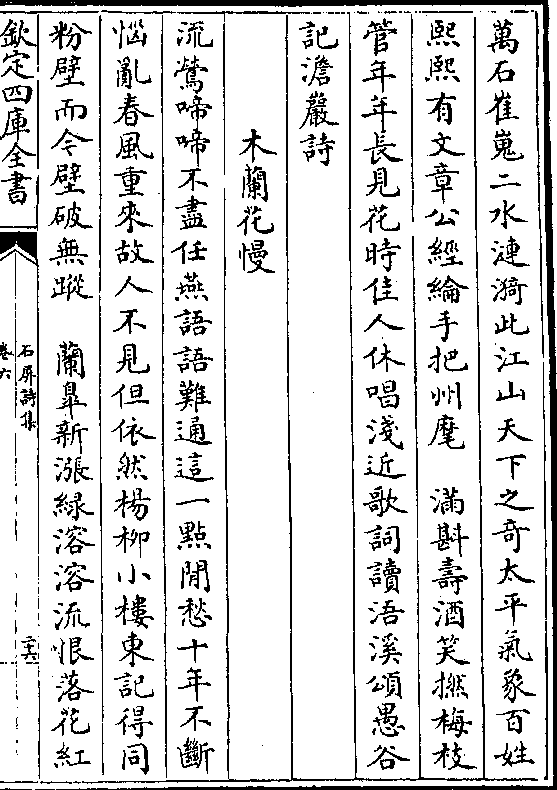 萬石崔嵬二水漣漪此江山天下之竒太平氣象百姓
熙熙有文章公經綸手把州麾　滿斟壽酒笑撚梅枝
管年年長見花時佳人休唱淺近歌詞讀浯溪頌愚谷
記澹巖詩
木蘭花慢
流鶯啼啼不盡任燕語語難通這一點閒愁十年不斷
惱亂春風重來故人不見但依然楊柳小樓東記得同
粉壁而今壁破無蹤　蘭臯新漲緑溶溶流恨落花紅
欽定四庫全書
石屏詩集
卷六
二六